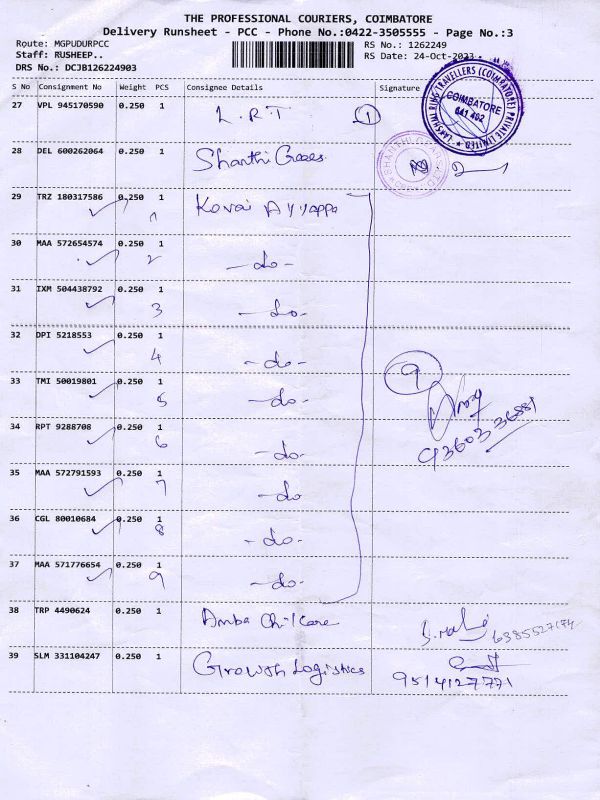 THE PROFESSIONAL COURIERS, COIMBATORE
Delivery Runsheet - PCC - Phone No.:0422-3505555 - Page No.:3
Route: MGPUDURPCC
Staff: RUSHEEP..
DRS No.: DCJB126224903
RS No.: 1262249
RS Date: 24-Oct-2023
S No Consignment No Weight PCS Consignee Details Signature
27 VPL 945170590 0.250 1 L.R.T 1
COIMBATORE
641 402
LAKSHMI RING TRAVELLERS (COIMBATORE) PRIVATE LIMITED
28 DEL 600262064 0.250 1 Shanthi Gears
29 TRZ 180317586 0.250 1 Kovai Ayyappa
1
30 MAA 572654574 0.250 1 -do-
2
31 IXM 504438792 0.250 1 -do-
3
32 DPI 5218553 0.250 1 -do-
4
33 TMI 50019801 0.250 1 -do-
5
9
34 RPT 9288708 0.250 1 -do-
6
93603 36881
35 MAA 572791593 0.250 1 -do-
7
36 CGL 80010684 0.250 1 -do-
8
37 MAA 571776654 0.250 1 -do-
9
38 TRP 4490624 0.250 1 Amba Chilcare 6385527174
39 SLM 331104247 0.250 1 Growth Logistics
9514127771